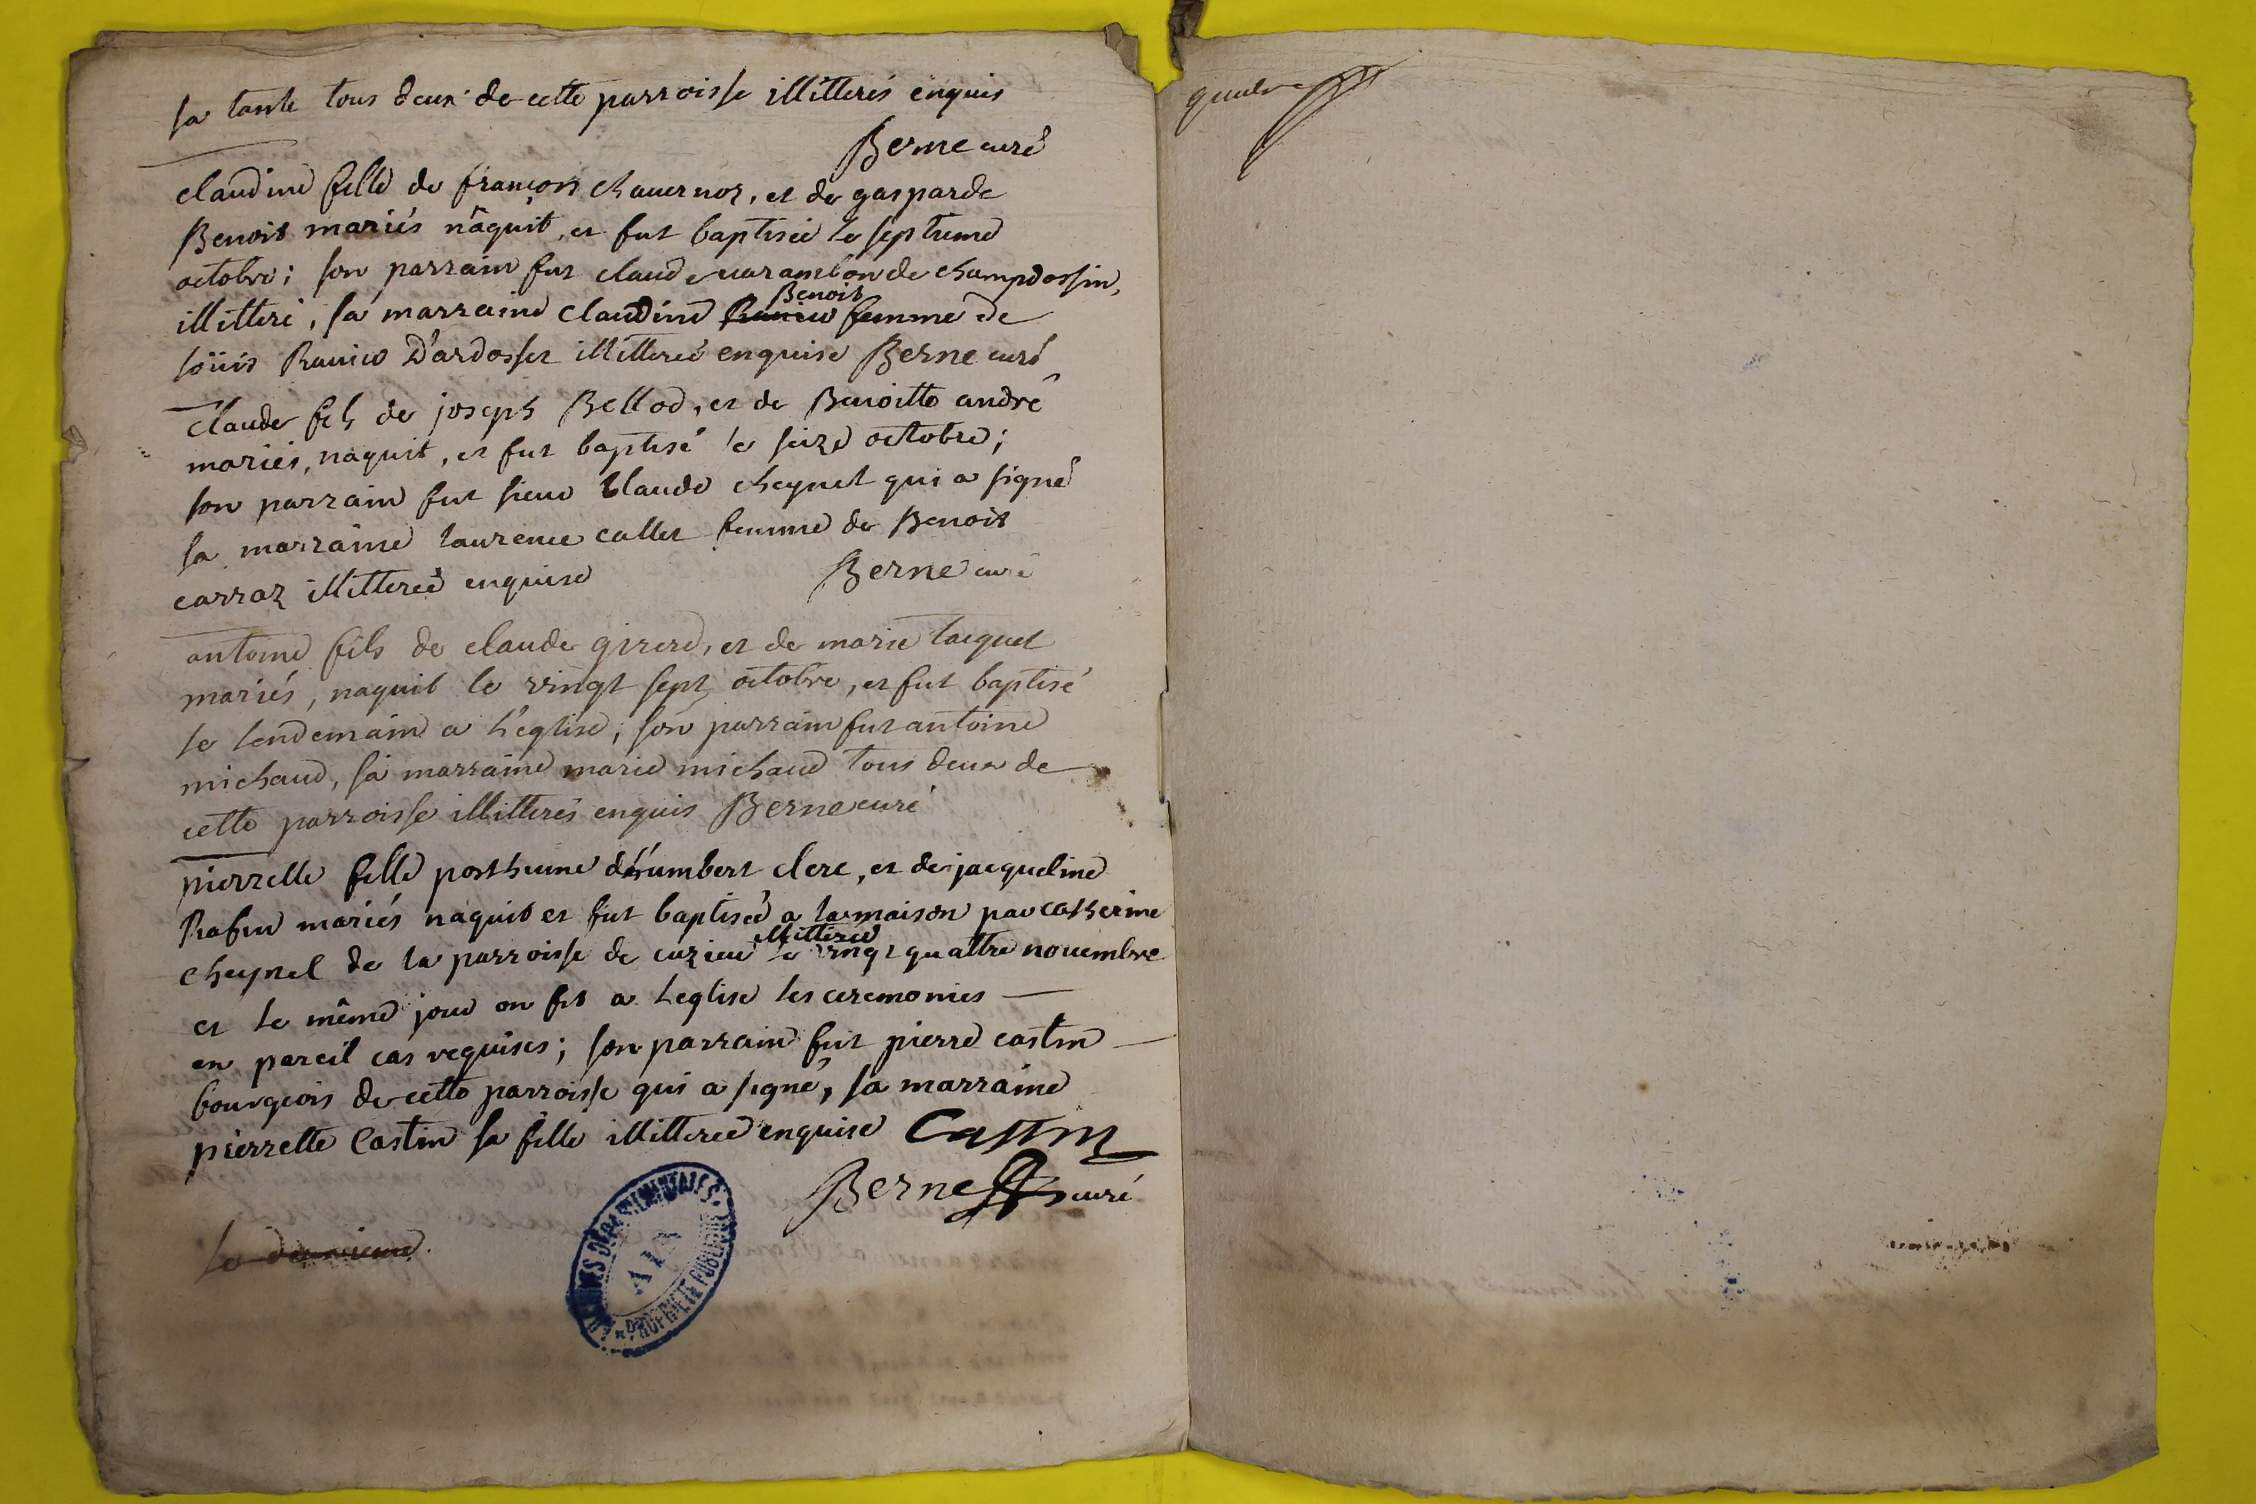 sa tante tous deux de cette parroisse illitterés enquis
Berne curé
claudine fille de françois chavernoz, et de gasparde
Benoit mariés nâquit, et fut baptisée le septieme
octobre; son parrain fut claude varambon de champdossin,
illitteré, sa marraine claudine Benoit femme de
loüis Ravier D'ardosset illitterée enquise Berne curé
claude fils de joseph Bellod, et de Benoitte andré
mariés, naquit, et fut baptisé le seize octobre;
son parrain fut sieur Claude cheynel qui a signé
sa marraine laurence callet femme de Benoit
carraz illitterée enquise Berne curé
antoine fils de claude girerd, et de marie tacquet
mariés, naquit le vingt sept octobre, et fut baptisé
le lendemain a l'eglise; son parrain fut antoine
michaud, sa marraine marie michaud tous deux de
cette parroisse illitterés enquis Berne curé
pierrette fille posthume d'humbert clerc, et de jacqueline
Rafin mariés naquit et fut baptisée a la maison par catherine
cheynel de la parroisse de cuzieu illitterée le vingt quattre novembre
et le même jour on fit a l'eglise les ceremonies
en pareil cas requises; son parrain fut pierre castin
bourgeois de cette parroisse qui a signé, sa marraine
pierrette Castin sa fille illitterée enquise Castin
Berne curé
le deuxieme
ARCHIVES DÉPARTEMENTALES
AIN
PROPRIÉTÉ PUBLIQUE